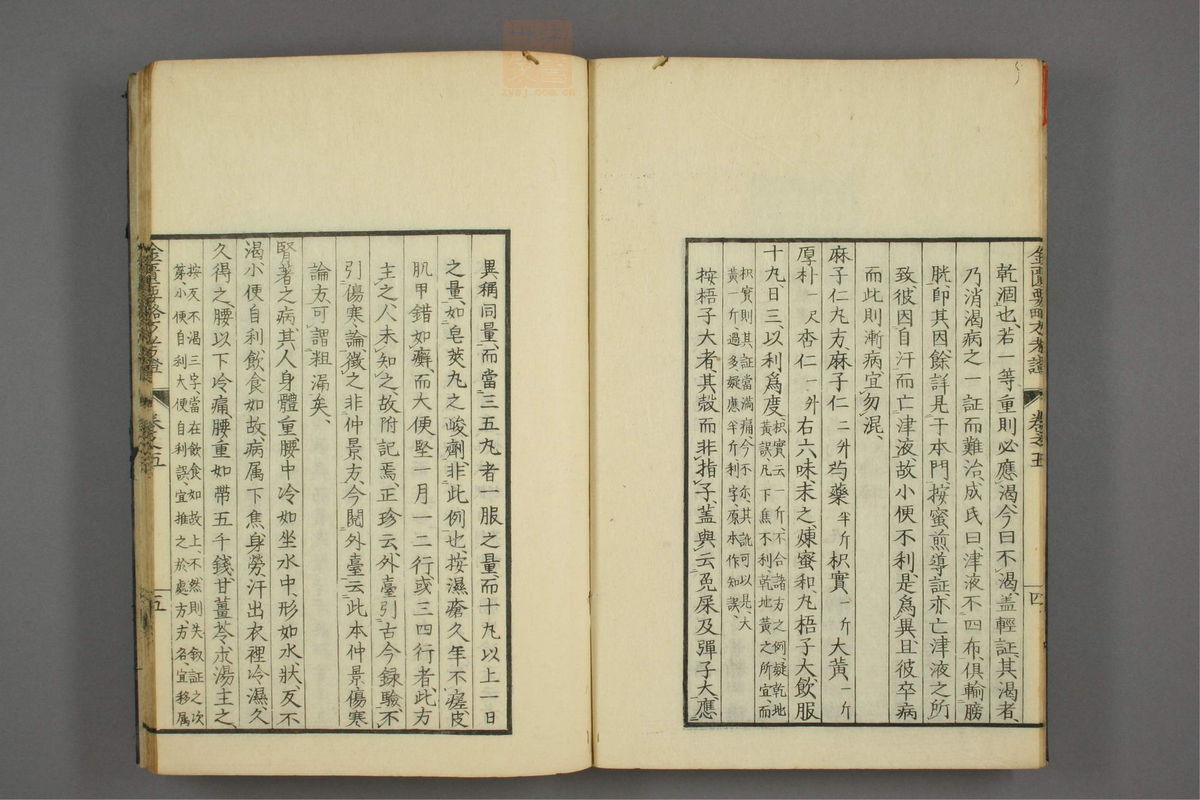 乾涸也、若一等重則必應渴、今曰不渴、蓋輕証、其渴者、
乃消渴病之一証而難治、成氏曰津液不四布、俱輸膀
胱、卽其因、餘詳見于本門、按蜜煎導証、亦亡津液之所
致、彼因自汗而亡津液、故小便不利、是爲異、且彼卒病
而此則漸病、宜勿混、
麻子仁丸方麻子仁二升芍藥半斤枳實一斤大黃、一斤
厚朴一尺杏仁一升右六味、末之、煉蜜和、丸梧子大、飲服
十丸、日三、以利爲度、
枳實云一斤不合諸方之例疑乾地黃誤、凡下焦不利、乾地黃之所宜而
枳實則其証當滿痛、今不尓、其訛可以是、大黃一斤、過多、疑應半斤、利字、原本作知誤、
按梧子大者、其殼而非指子、蓋與云兔屎及彈子大、應
金匱要略方考證 卷之五 四
異稱同量、而當三五丸者一服之量、而十丸以上一日
之量、如皂莢丸之峻劑、非此例也、按濕瘡久年不瘥、皮
肌甲錯如癬、而大便堅一月一二行或三四行者、此方
主之、人未知之、故附記焉、正珍云、外臺引古今錄驗、不
引傷寒論、徵之非仲景方、今閱外臺云、此本仲景傷寒
論方、可謂粗漏矣、
腎著之病、其人身體重、腰中冷、如坐水中、形如水狀、反不
渴、小便自利、飲食如故、病属下焦、身勞汗出、衣裡冷濕、久
久得之、腰以下冷痛、腰重如帶五千錢、甘薑苓朮湯主之、
按反不渴三字、當在飲食如故上、不然則失叙証之次
序、小便自利大便自利誤、宜推之於處方、方名、宜移属
金匱要略方考證 卷之五 五